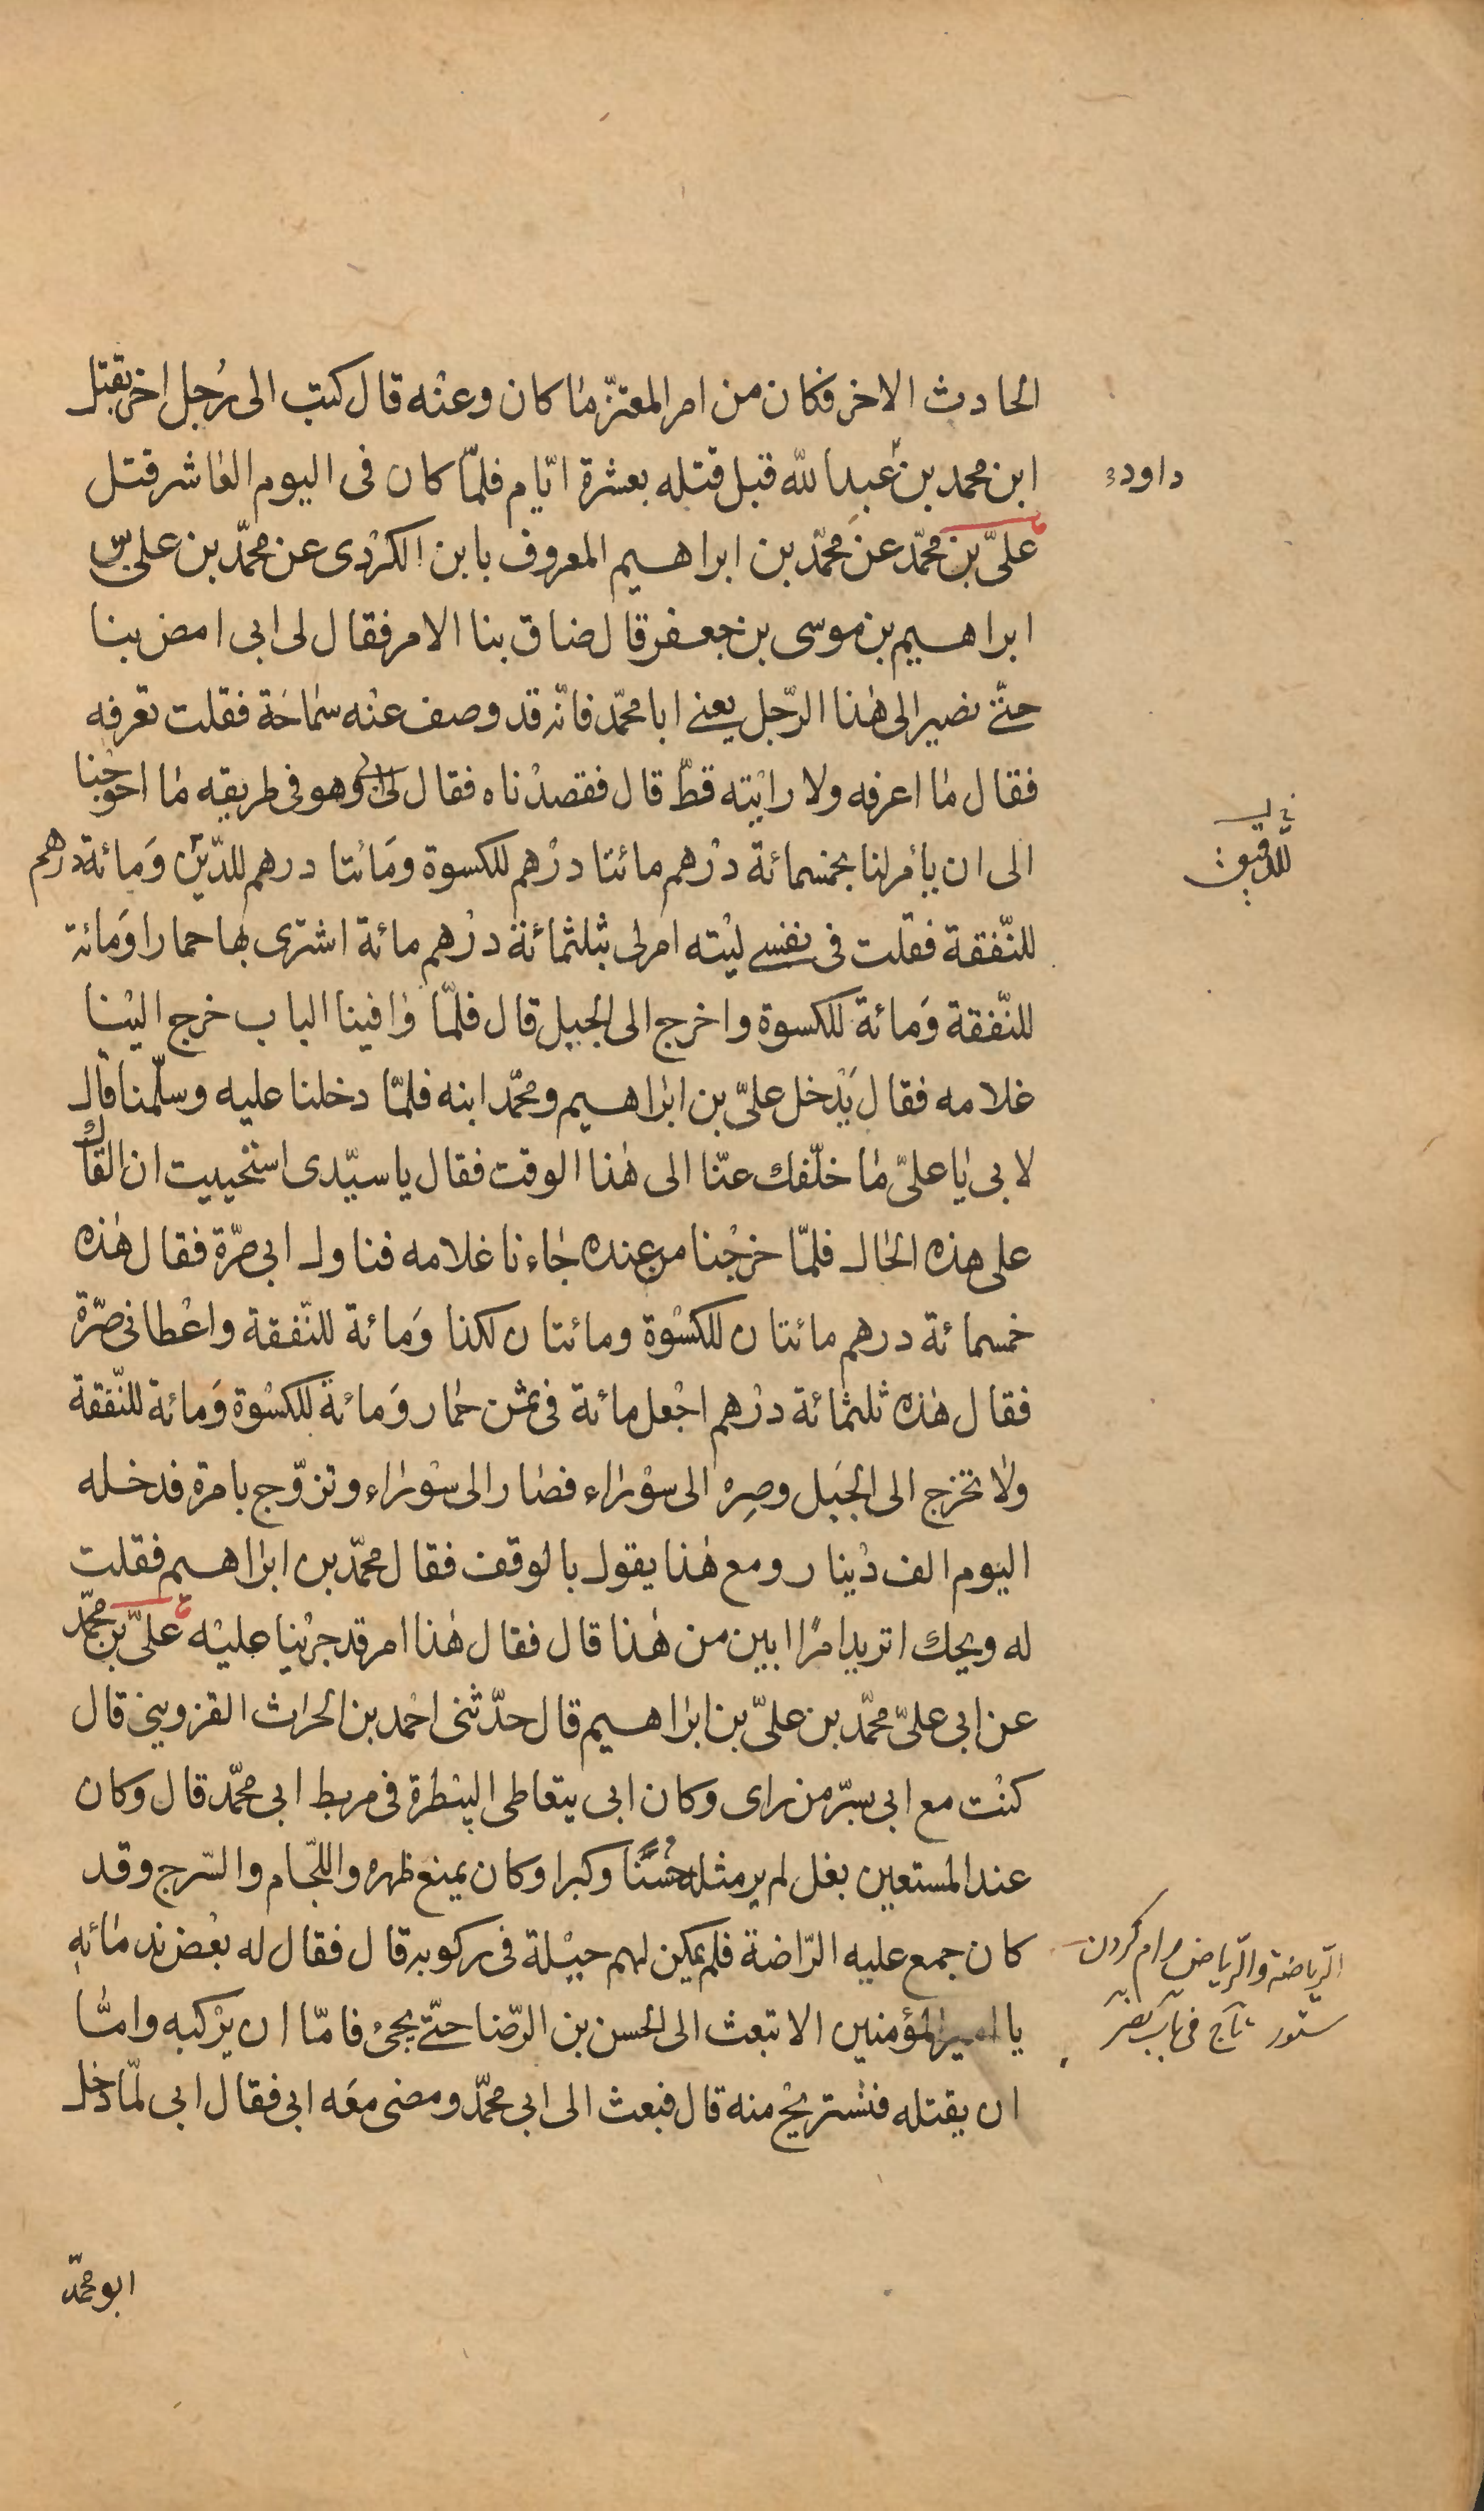 الحادث الاخر فكان من امر المعتزّ ما كان وعنه قال كتب الى رجل اخر يقتل
ابن محمد بن عبد الله قبل قتله بعشرة ايّام فلمّا كان فى اليوم العاشر قتل
داود
علىّ بن محمّد عن محمّد بن ابراهيم المعروف بابن الكردى عن محمّد بن على بن
ابراهيم بن موسى بن جعفر قال ضاق بنا الامر فقال لى ابى امض بنا
حتّى نصير الى هذا الرّجل يعنى ابا محمّد فانّه قد وصف عنه سماحة فقلت تعرفه
فقال ما اعرفه ولا رايته قطّ قال فقصدناه فقال لى ابى وهو فى طريقه ما احوجنا
الى ان يأمر لنا بخمسمائة درهم مائتا درهم للكسوة ومائتا درهم للدّين ومائة درهم
للدقيق
للنّفقة فقلت فى نفسى ليته امر لى بثلثمائة درهم مائة اشترى بها حمارا ومائة
للنّفقة ومائة للكسوة واخرج الى الجبل قال فلمّا وافينا الباب خرج الينا
غلامه فقال يدخل علىّ بن ابراهيم ومحمّد ابنه فلمّا دخلنا عليه وسلّمنا قال
لابى يا علىّ ما خلّفك عنّا الى هذا الوقت فقال يا سيّدى استحييت ان القاك
على هذه الحال فلمّا خرجنا من عنده جاءنا غلامه فناول ابى صرّة فقال هذه
خمسمائة درهم مائتان للكسوة ومائتان لكذا ومائة للنّفقة واعطانى صرّة
فقال هذه ثلثمائة درهم اجعل مائة فى ثمن حمار ومائة للكسوة ومائة للنّفقة
ولا تخرج الى الجبل وصره الى سوراء فصار الى سوراء وتزوّج بامرة فدخله
اليوم الف دينار ومع هذا يقول بالوقف فقال محمّد بن ابراهيم فقلت
له ويحك اتريد امرا ابين من هذا قال فقال هذا امر قد جرينا عليه علىّ بن محمّد
عن ابى علىّ محمّد بن علىّ بن ابراهيم قال حدّثنى احمد بن الحراث القزوينى قال
كنت مع ابى بسرّ من راى وكان ابى يتعاطى البيطرة فى مربط ابى محمّد قال وكان
عند المستعين بغل لم ير مثله حسنا وكبرا وكان يمنع ظهره واللّجام والسّرج وقد
كان جمع عليه الرّاضة فلم يمكن لهم حيلة فى ركوبه قال فقال له بعض ندمائه
الرّياضة والرّياض رام كردن
ستور تاج
يا امير المؤمنين الا تبعث الى الحسن بن الرّضا حتّى يجىء فامّا ان يركبه وامّا
ان يقتله فنستريح منه قال فبعث الى ابى محمّد ومضى معه ابى فقال ابى لمّا دخل
ابو محمّد